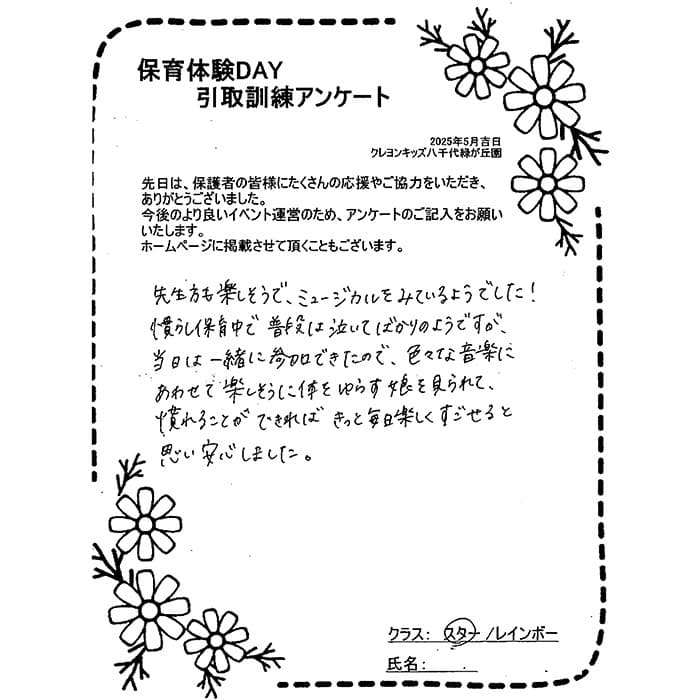 保育体験DAY
引取訓練アンケート
2025年5月吉日
クレヨンキッズ八千代緑が丘園
先日は、保護者の皆様にたくさんの応援やご協力をいただき、
ありがとうございました。
今後のより良いイベント運営のため、アンケートのご記入をお願い
いたします。
ホームページに掲載させて頂くこともございます。
先生方も楽しそうで、ミュージカルをみているようでした!
慣らし保育中で普段は泣いてばかりのようですが、
当日は一緒に参加できたので、色々な音楽に
あわせて楽しそうに体をゆらす娘を見られて、
慣れることができればきっと毎日楽しくすごせると
思い安心しました。
クラス: スター /レインボー
氏名: